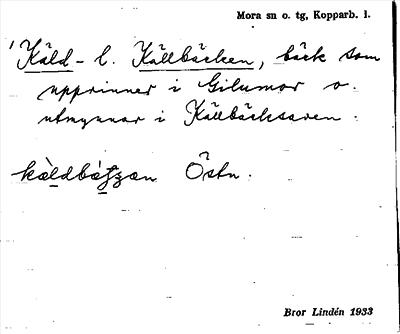 Mora sn o. tg, Kopparb. l.
Käld- l. Källbäcken, bäck som
upprinner i Gilumor o.
utmynnar i Källbäckssven.
Östn.
Bror Lindén 1933